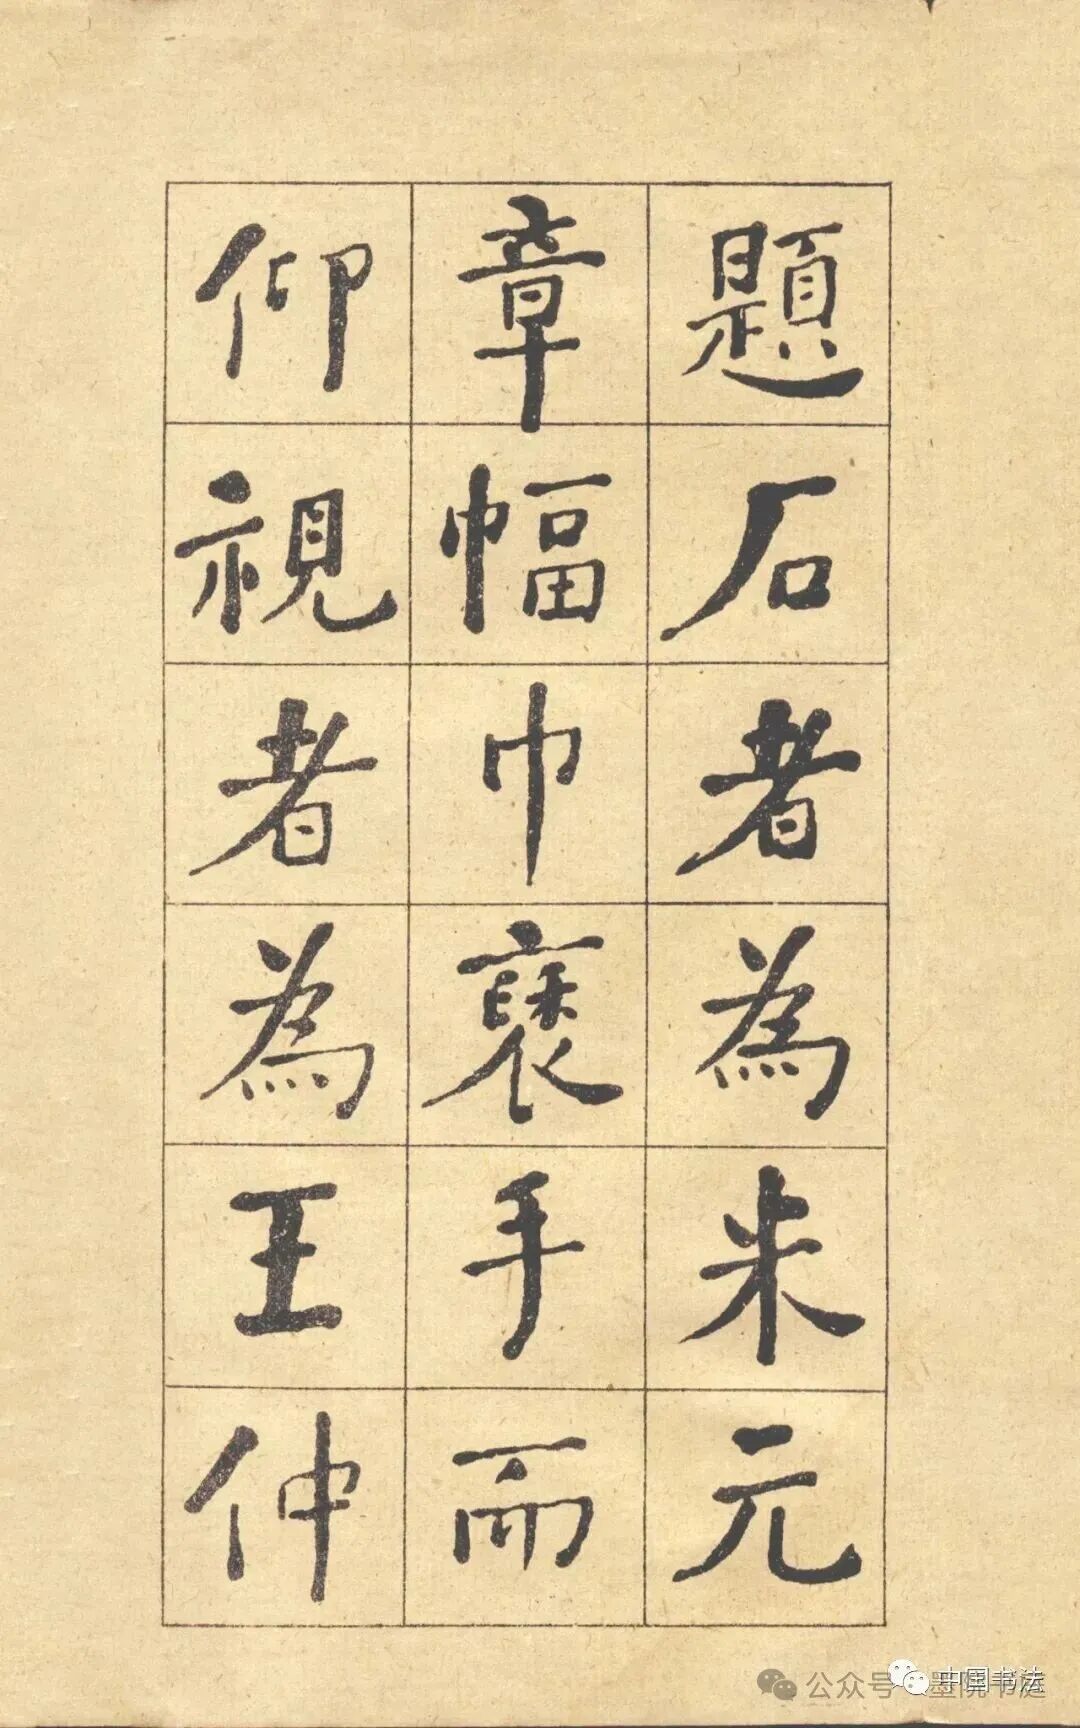 題石者為米元
章幅巾褎手而
仰視者為王仲
公众号
中国书法